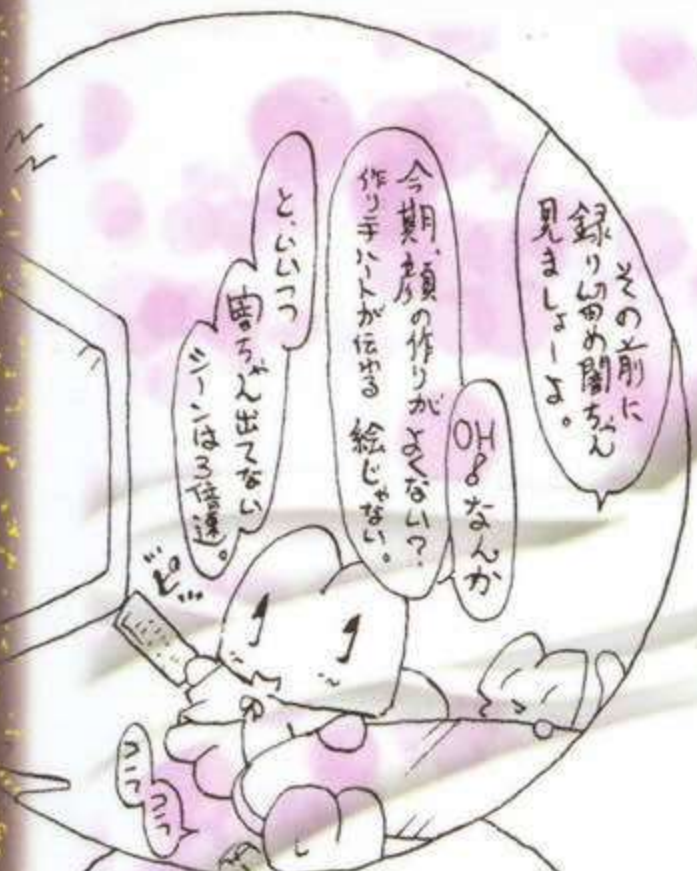 その前に
録り留め闇ちゃん
見ましょーよ。
OH&なんか
今期、顔の作りがよくない？
作り手ハートが伝わる 絵じゃない。
と、いいつつ
闇ちゃん出てない
シーンは3倍速。
ピ